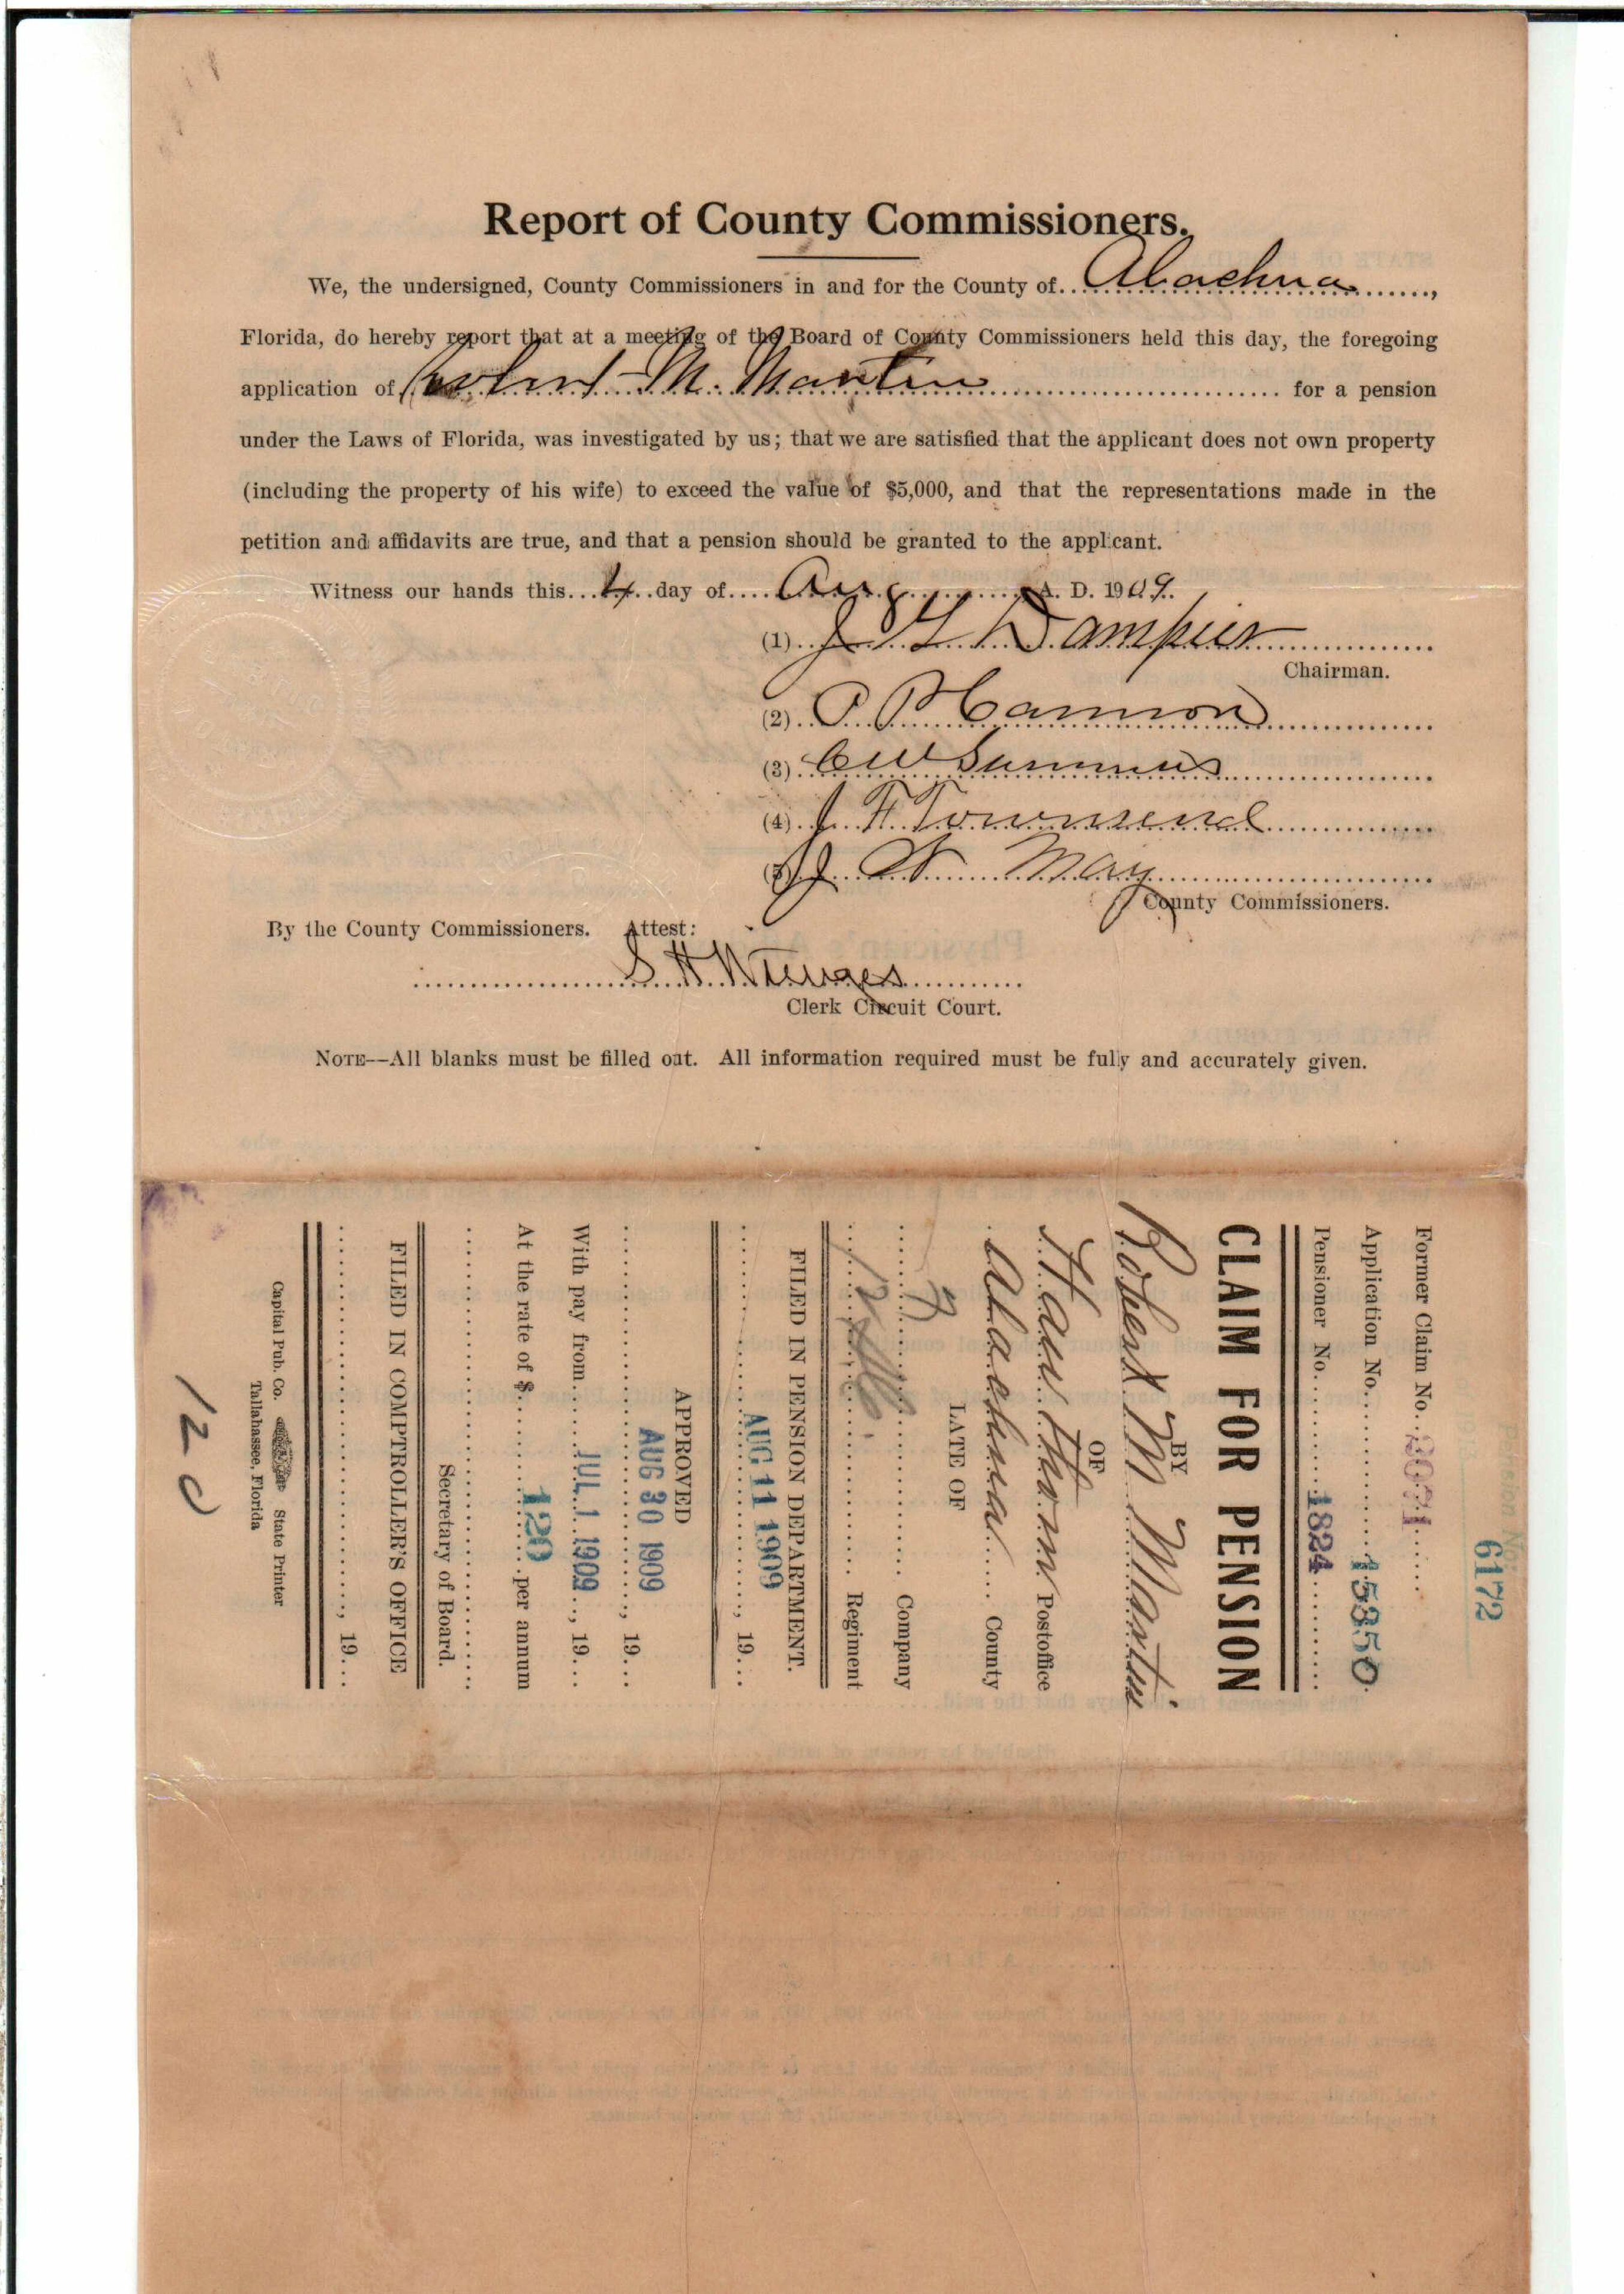 Report of County Commissioners.
We, the undersigned, County Commissioners in and for the County of Alachua,
Florida, do hereby report that at a meeting of the Board of County Commissioners held this day, the foregoing
application of Robert M. Martin for a pension
under the Laws of Florida, was investigated by us; that we are satisfied that the applicant does not own property
(including the property of his wife) to exceed the value of $5,000, and that the representations made in the
petition and affidavits are true, and that a pension should be granted to the applicant.
Witness our hands this 4 day of Aug A. D. 1909.
(1) J G Dampier
Chairman.
(2) P P Cannon
(3) C W Summers
(4) J F Townsend
(5) J W May
County Commissioners.
By the County Commissioners. Attest:
S H Wienges
Clerk Circuit Court.
NOTE—All blanks must be filled out. All information required must be fully and accurately given.
6172
Former Claim No.
Application No. 15350
Pensioner No. 1824
CLAIM FOR PENSION
BY
Robert M Martin
OF
Hawthorn Postoffice
Alachua County
LATE OF
Company
Regiment
FILED IN PENSION DEPARTMENT.
AUG 11 1909, 19
APPROVED
AUG 30 1909, 19
With pay from JUL 1 1909, 19
At the rate of $ 120 per annum
Secretary of Board.
FILED IN COMPTROLLER'S OFFICE
, 19
Capital Pub. Co. State Printer
Tallahassee, Florida
120